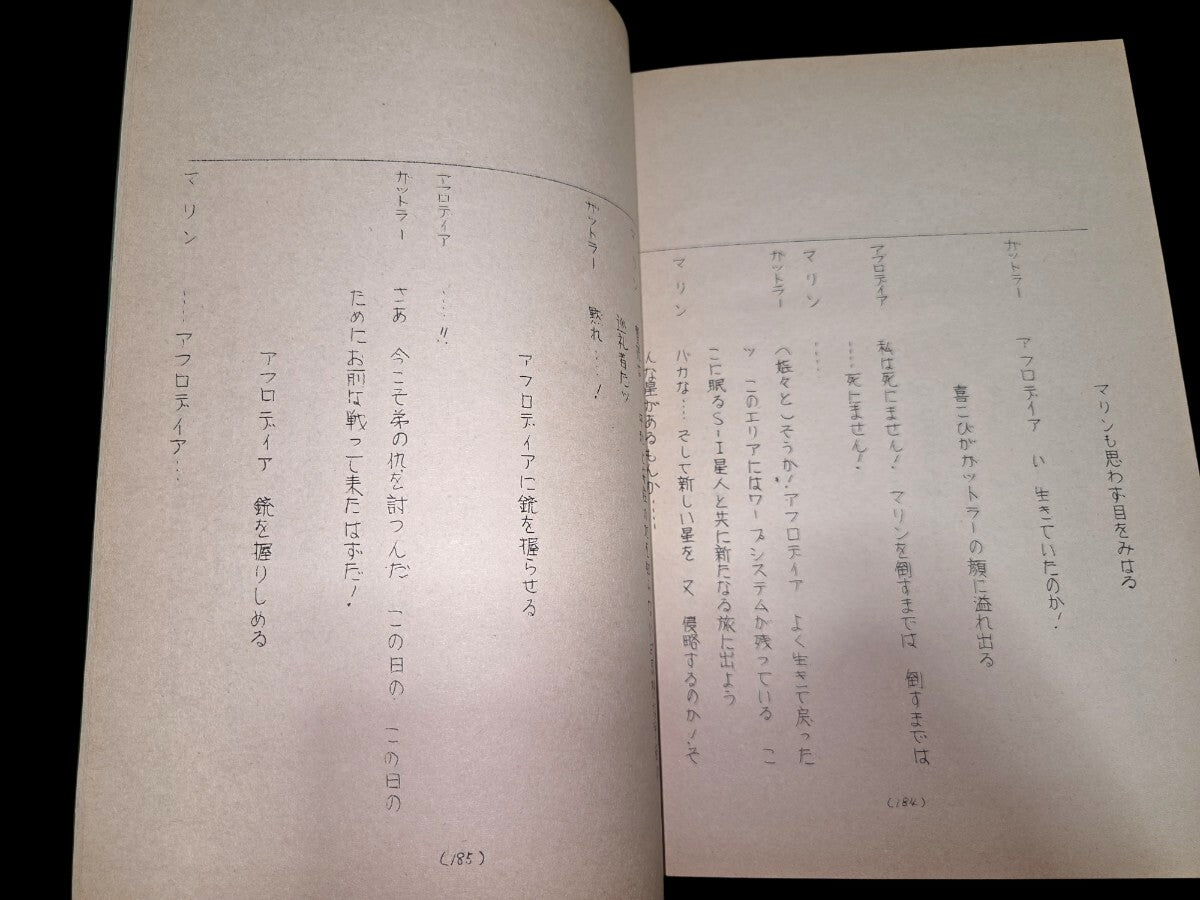 マリンも思わず目をみはる
ガットラー　アフロディア　い　生きていたのか！
喜こびがガットラーの顔に溢れ出る
アフロディア　私は死にません！　マリンを倒すまでは　倒すまでは
……死にません！
マリン　……
ガットラー　アフロディア　よく生きて戻った
ッ　このエリアにはワープシステムが残っている　こ
こに眠るS-1星人と共に新たなる旅に出よう
マリン　バカな……そして新しい星を　又　侵略するのか！そ
んな星があるもんか……
(184)
巡礼者だッ
ガットラー　黙れ……！
アフロディアに銃を握らせる
アフロディア　……!!
ガットラー　さあ　今こそ弟の仇を討つんだ　この日の　この日の
ためにお前な戦って来たはずだ！
アフロディア　銃を握りしめる
マリン　……アフロディア…
(185)